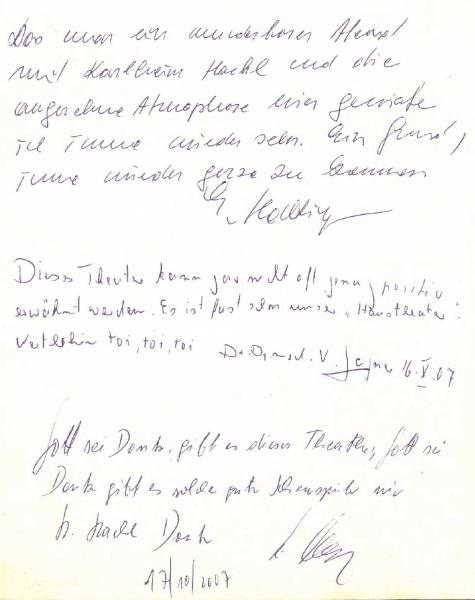 Das war ein wunderbarer Abend
mit Karlheinz Hackl und die
angenehme Atmosphäre hier genieße
ich immer wieder sehr. Ein Grund,
immer wieder gerne zu kommen
Dieses Theater kann gar nicht oft genug positiv
erwähnt werden. Es ist fast schon unser "Haustheater".
Weiterhin toi, toi, toi Dr. med. V. 16.V.07
Gott sei Dank, gibt es dieses Theater, Gott sei
Dank gibt es solche gute Schauspieler wie
H. Hackl Dank
17/10/2007